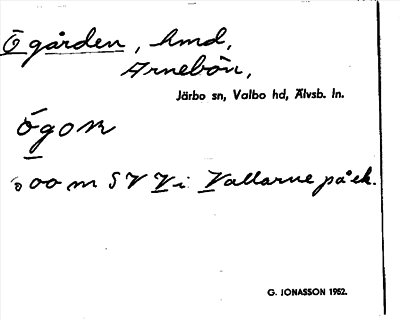 Ögården, hmd,
Arnebön,
Järbo sn, Valbo hd, Älvsb. ln.
00 m SV Vi Vallarne på ek.
G. JONASSON 1952.